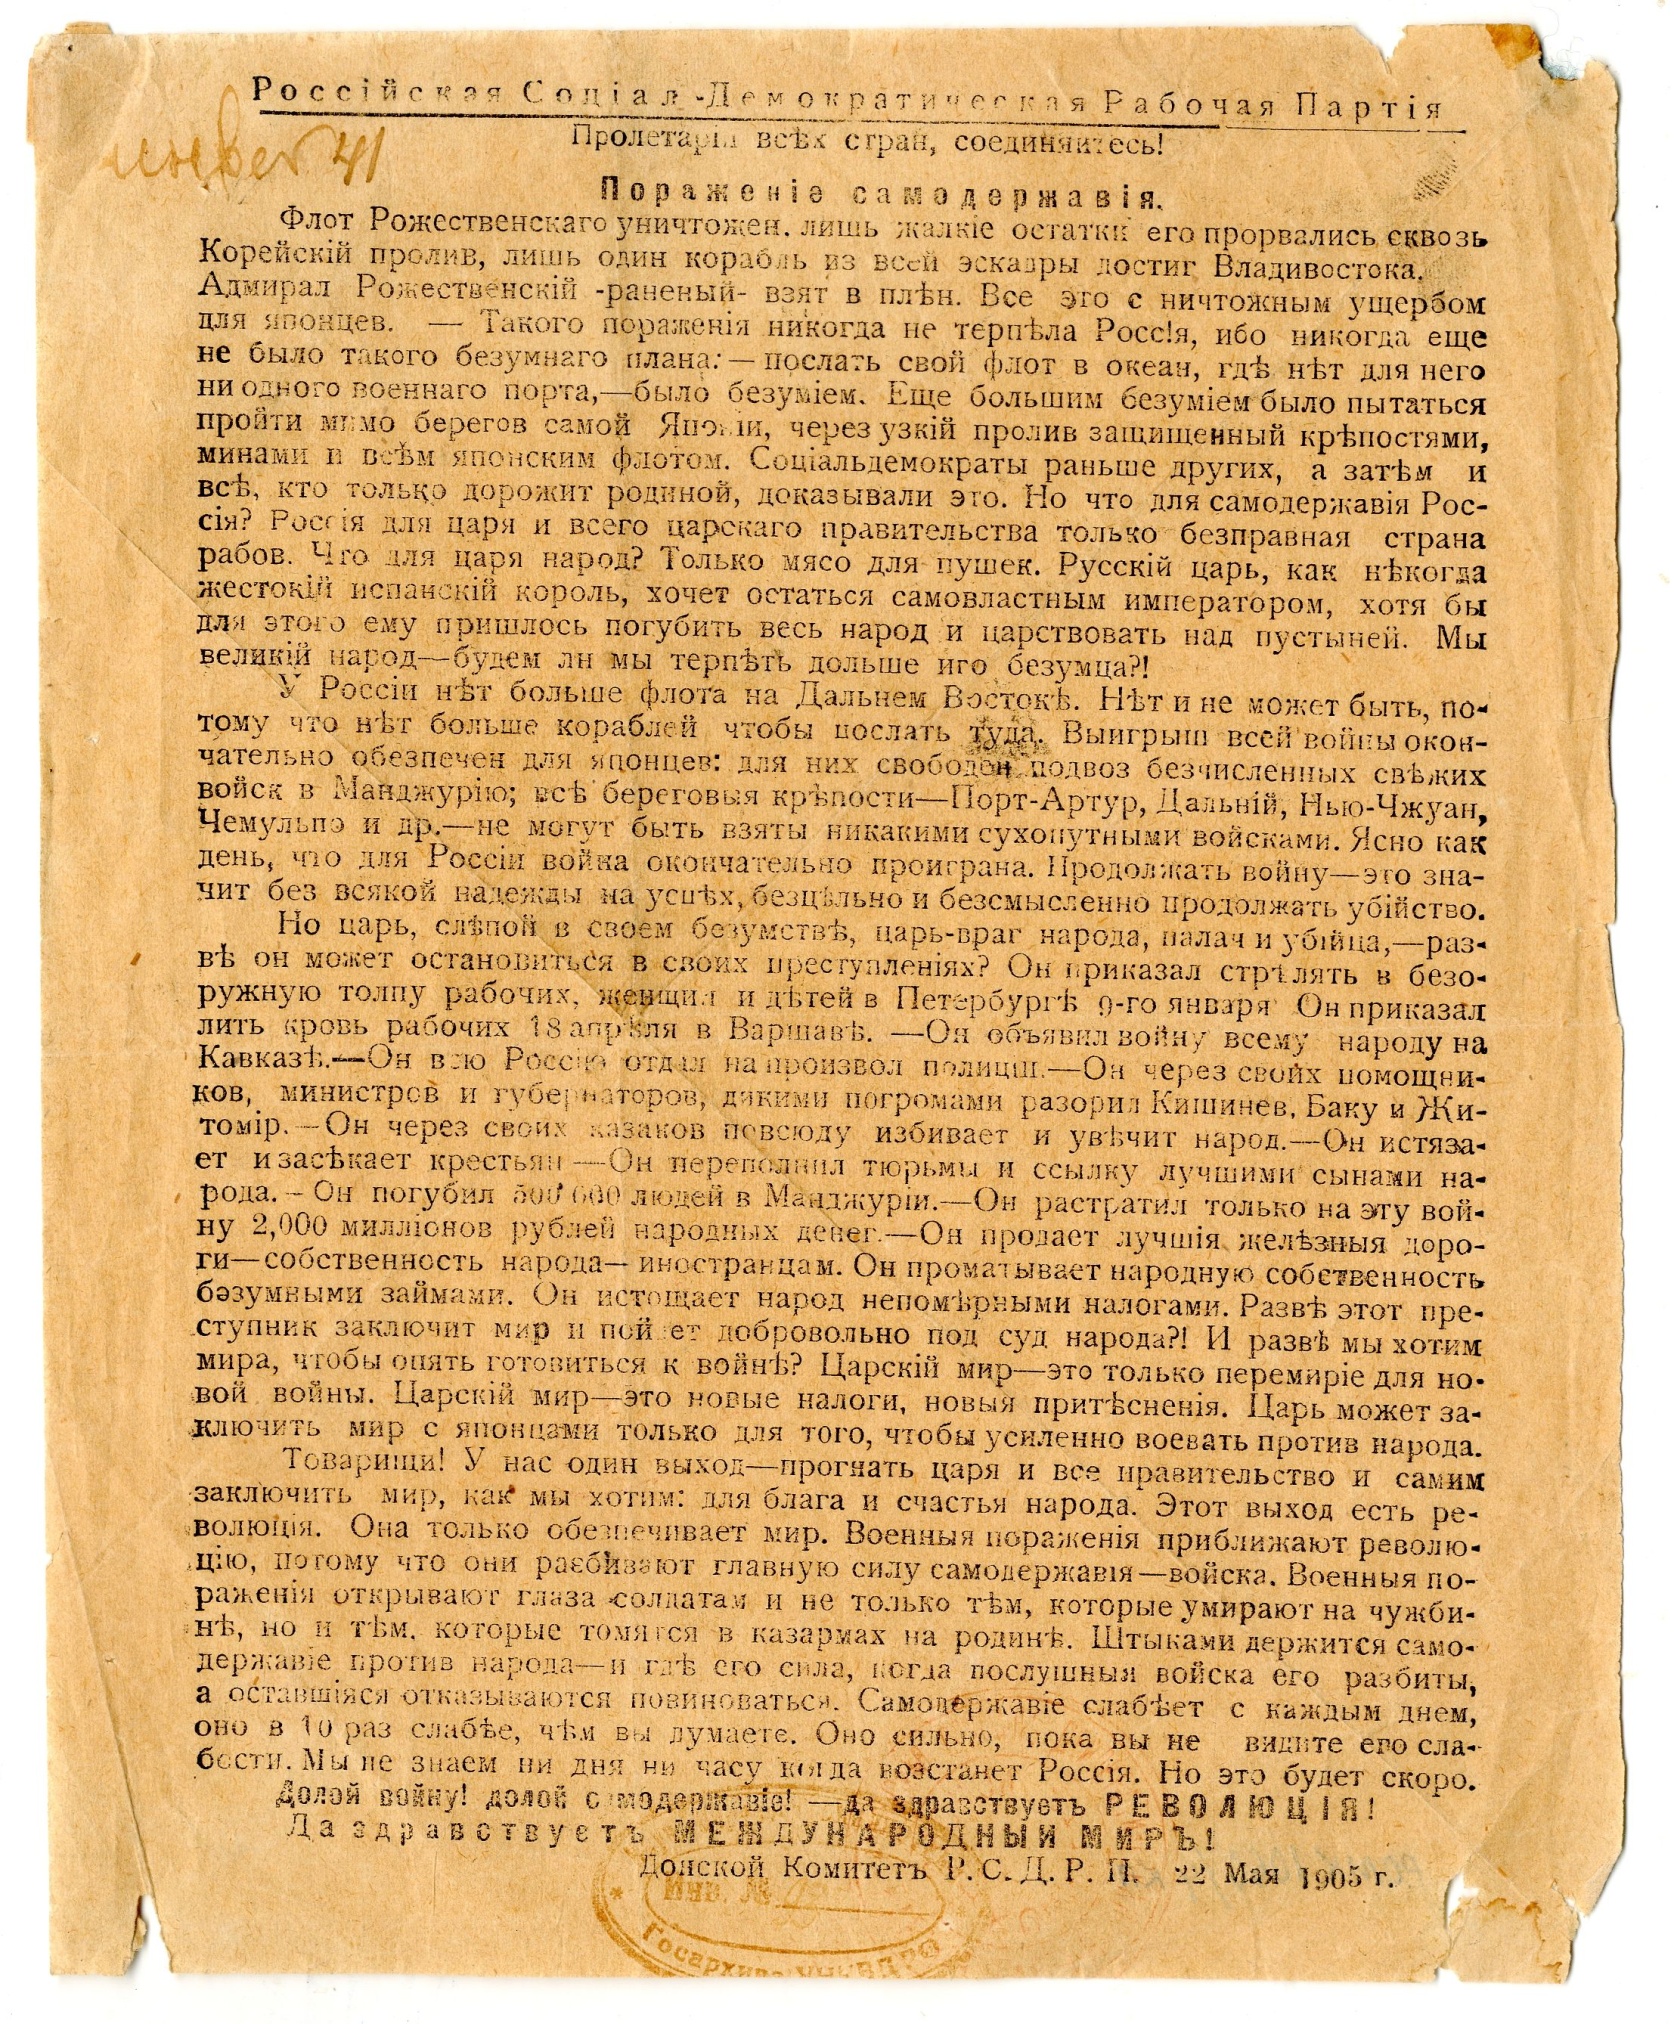 Россійская Соціал-Демократическая Рабочая Партія
Пролетаріи всѣх стран, соединяитесь!
41
Пораженіе самодержавія.
Флот Рожественскаго уничтожен. лишь жалкіе остатки его прорвались сквозь
Корейскій пролив, лишь один корабль из всей эскадры достиг Владивостока.
Адмирал Рожественскій -раненый- взят в плѣн. Все это с ничтожным ущербом
для японцев. — Такого пораженія никогда не терпѣла Росс!я, ибо никогда еще
не было такого безумнаго плана: — послать свой флот в океан, гдѣ нѣт для него
ни одного военнаго порта,—было безуміем. Еще большим безуміем было пытаться
пройти мимо берегов самой Японіи, через узкій пролив защищенный крѣпостями,
минами и всѣм японским флотом. Соціальдемократы раньше других, а затѣм и
всѣ, кто только дорожит родиной, доказывали это. Но что для самодержавія Рос-
сія? Россія для царя и всего царскаго правительства только безправная страна
рабов. Что для царя народ? Только мясо для пушек. Русскій царь, как нѣкогда
жестокій испанскій король, хочет остаться самовластным императором, хотя бы
для этого ему пришлось погубить весь народ и царствовать над пустыней. Мы
великій народ—будем ли мы терпѣть дольше иго безумца?!
У Россіи нѣт больше флота на Дальнем Востокѣ. Нѣт и не может быть, по-
тому что нѣт больше кораблей чтобы послать туда. Выигрыш всей войны окон-
чательно обезпечен для японцев: для них свободен подвоз безчисленных свѣжих
войск в Манджурію; всѣ береговыя крѣпости—Порт-Артур, Дальній, Нью-Чжуан,
Чемульпэ и др.—не могут быть взяты никакими сухопутными войсками. Ясно как
день, что для Россіи война окончательно проиграна. Продолжать войну—это зна-
чит без всякой надежды на успѣх, безцѣльно и безсмысленно продолжать убійство.
Но царь, слѣпой в своем безумствѣ, царь-враг народа, палач и убійца,—раз-
вѣ он может остановиться в своих преступленіях? Он приказал стрѣлять в безо-
ружную толпу рабочих, женщин и дѣтей в Петербургѣ 9-го января Он приказал
лить кровь рабочих 18 апрѣля в Варшавѣ. —Он объявил войну всему народу на
Кавказѣ.—Он всю Россію отдал на произвол полиціи.—Он через своих помощни-
ков, министров и губернаторов, дикими погромами разорил Кишинев, Баку и Жи-
томір.—Он через своих казаков повсюду избивает и увѣчит народ.—Он истяза-
ет и засѣкает крестьян —Он переполнил тюрьмы и ссылку лучшими сынами на-
рода.—Он погубил 500 000 людей в Манджуріи.—Он растратил только на эту вой-
ну 2,000 милліонов рублей народных денег.—Он продает лучшія желѣзныя доро-
ги—собственность народа—иностранцам. Он проматывает народную собственность
безумными займами. Он истощает народ непомѣрными налогами. Развѣ этот пре-
ступник заключит мир и пойдет добровольно под суд народа?! И развѣ мы хотим
мира, чтобы опять готовиться к войнѣ? Царскій мир—это только перемиріе для но-
вой войны. Царскій мир—это новые налоги, новыя притѣсненія. Царь может за-
ключить мир с японцами только для того, чтобы усиленно воевать против народа.
Товарищи! У нас один выход—прогнать царя и все правительство и самим
заключить мир, как мы хотим: для блага и счастья народа. Этот выход есть ре-
волюція. Она только обезпечивает мир. Военныя пораженія приближают револю-
цію, потому что они разбивают главную силу самодержавія—войска. Военныя по-
раженія открывают глаза солдатам и не только тѣм, которые умирают на чужби-
нѣ, но и тѣм, которые томятся в казармах на родинѣ. Штыками держится само-
державіе против народа—и гдѣ его сила, когда послушныя войска его разбиты,
а оставшіяся отказываются повиноваться. Самодержавіе слабѣет с каждым днем,
оно в 10 раз слабѣе, чѣм вы думаете. Оно сильно, пока вы не видите его сла-
бости. Мы не знаем ни дня ни часу когда возстанет Россія. Но это будет скоро.
Долой войну! долой самодержавіе! —да здравствуетъ РЕВОЛЮЦІЯ!
Да здравствуетъ МЕЖДУНАРОДНЫЙ МИРЪ!
Донской Комитетъ Р. С. Д. Р. П. 22 Мая 1905 г.
Инв. №
Госархив УНКВД РО